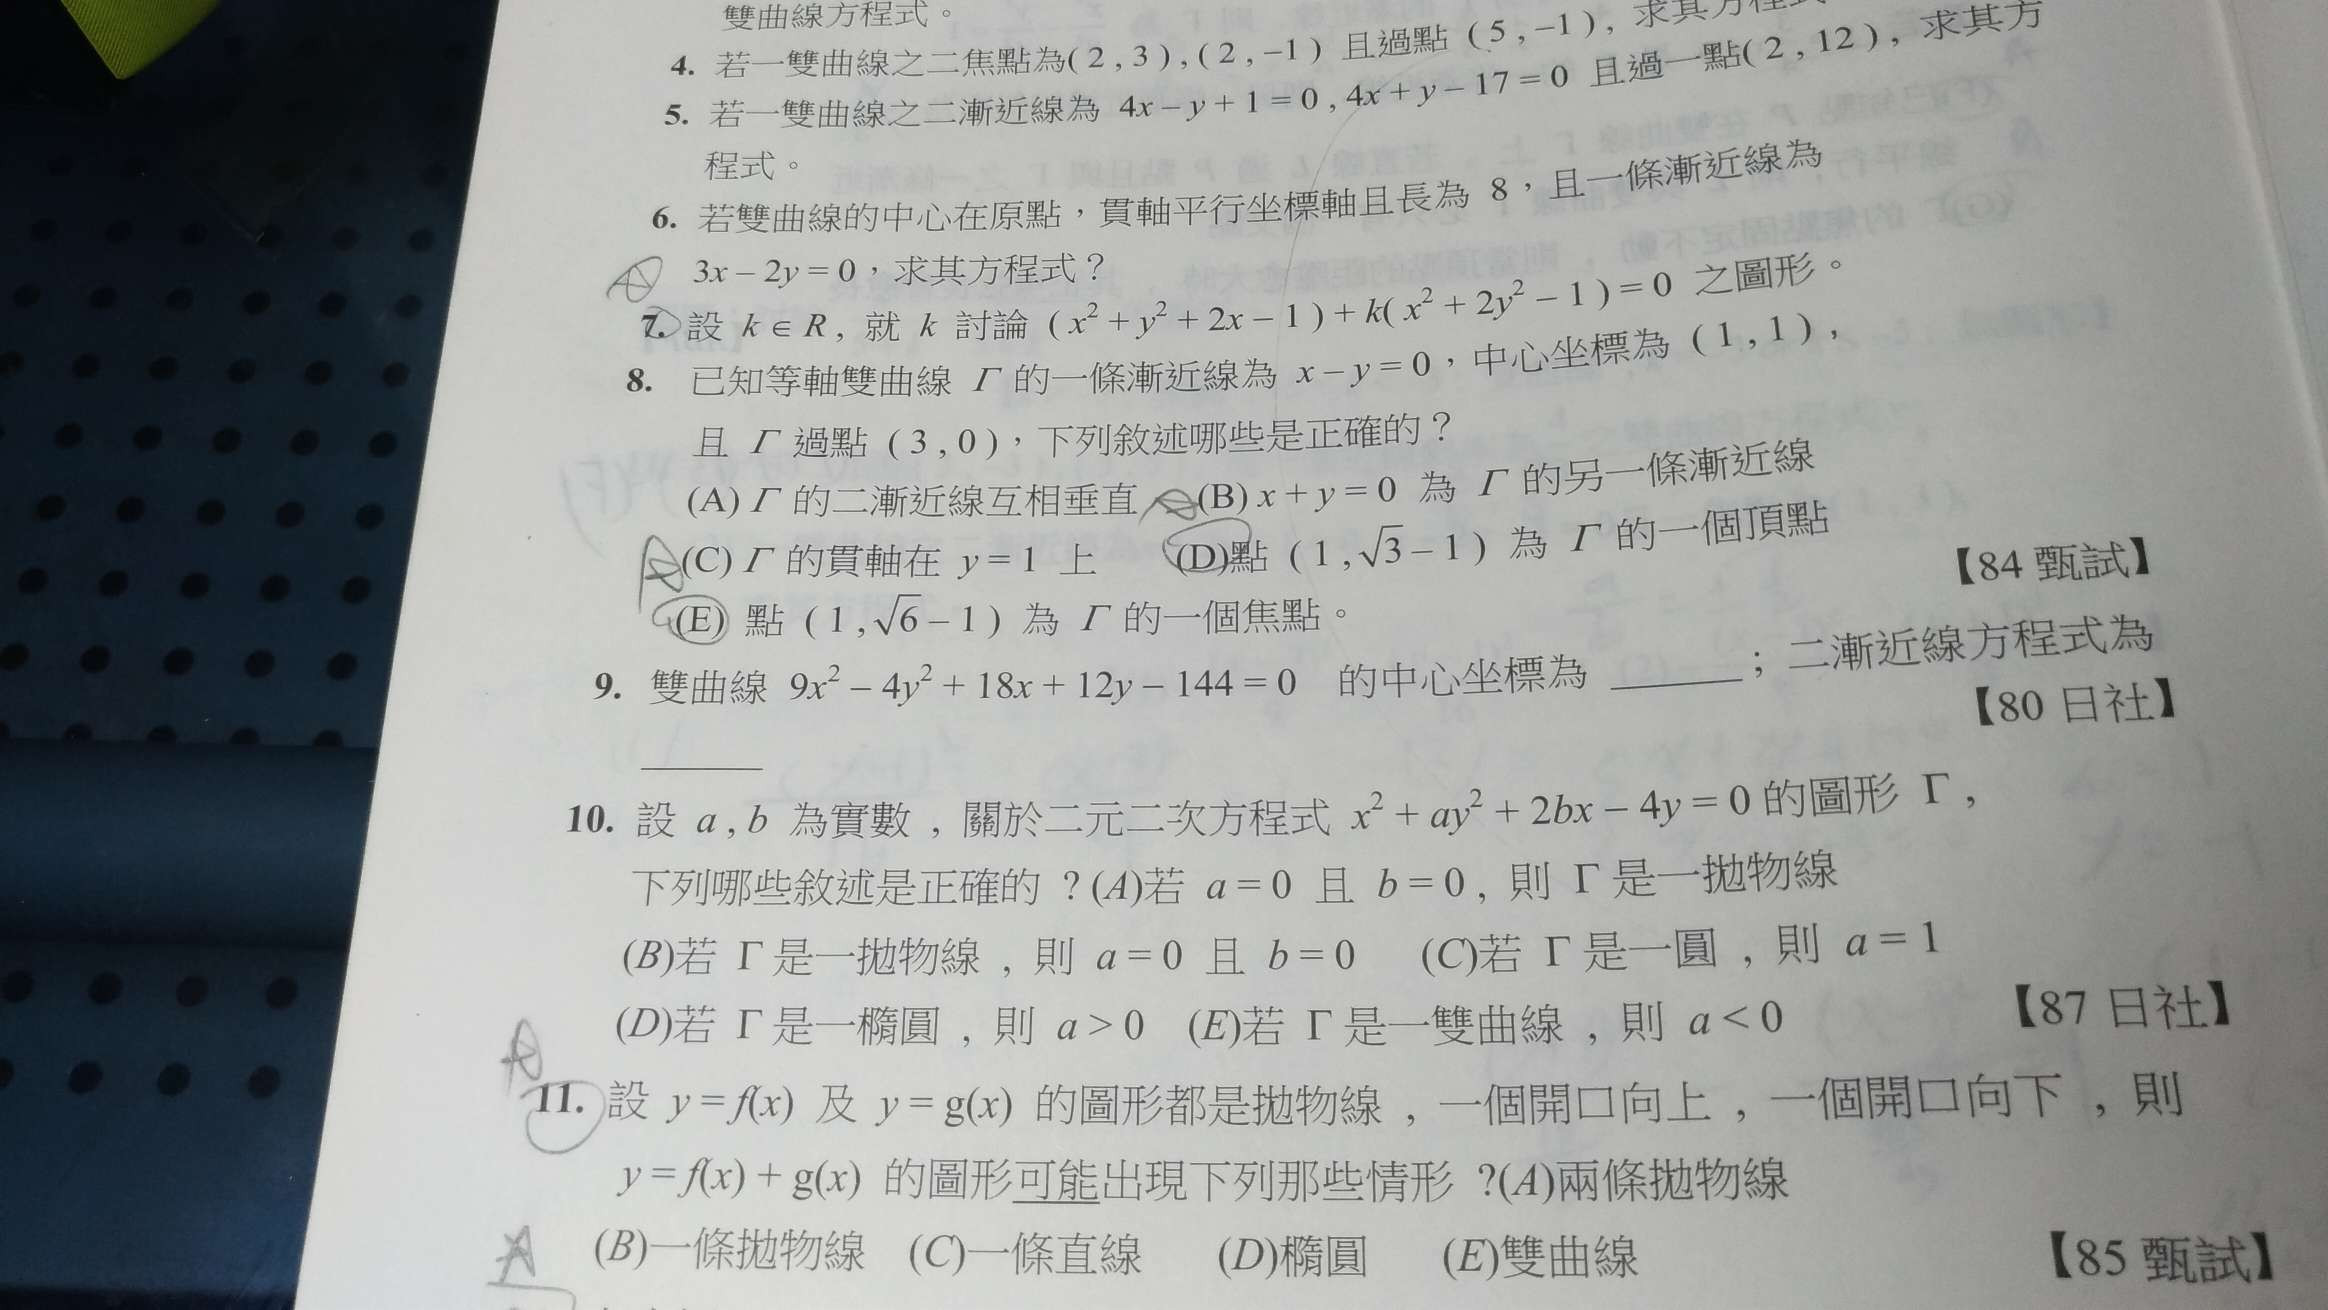 雙曲線方程式。
4. 若一雙曲線之二焦點為(2,3),(2,–1) 且過點 (5,–1), 求其方程式
5. 若一雙曲線之二漸近線為 4x – y + 1 = 0 , 4x + y – 17 = 0 且過一點(2,12), 求其方
程式。
6. 若雙曲線的中心在原點，貫軸平行坐標軸且長為 8，且一條漸近線為
3x – 2y = 0，求其方程式？
7. 設 k ∈ R, 就 k 討論 (x² + y² + 2x – 1) + k(x² + 2y² – 1) = 0 之圖形。
8. 已知等軸雙曲線 Γ 的一條漸近線為 x – y = 0，中心坐標為 (1,1),
且 Γ 過點 (3,0)，下列敘述哪些是正確的？
(A) Γ 的二漸近線互相垂直 (B) x + y = 0 為 Γ 的另一條漸近線
(C) Γ 的貫軸在 y = 1 上 (D)點 (1,√3 – 1) 為 Γ 的一個頂點
【84 甄試】
(E) 點 (1,√6 – 1) 為 Γ 的一個焦點。
9. 雙曲線 9x² – 4y² + 18x + 12y – 144 = 0 的中心坐標為 ______; 二漸近線方程式為
______ 【80 日社】
10. 設 a , b 為實數，關於二元二次方程式 x² + ay² + 2bx – 4y = 0 的圖形 Γ,
下列哪些敘述是正確的？(A)若 a = 0 且 b = 0, 則 Γ 是一拋物線
(B)若 Γ 是一拋物線，則 a = 0 且 b = 0 (C)若 Γ 是一圓，則 a = 1
(D)若 Γ 是一橢圓，則 a > 0 (E)若 Γ 是一雙曲線，則 a < 0 【87 日社】
11. 設 y = f(x) 及 y = g(x) 的圖形都是拋物線，一個開口向上，一個開口向下，則
y = f(x) + g(x) 的圖形可能出現下列那些情形？(A)兩條拋物線
(B)一條拋物線 (C)一條直線 (D)橢圓 (E)雙曲線 【85 甄試】